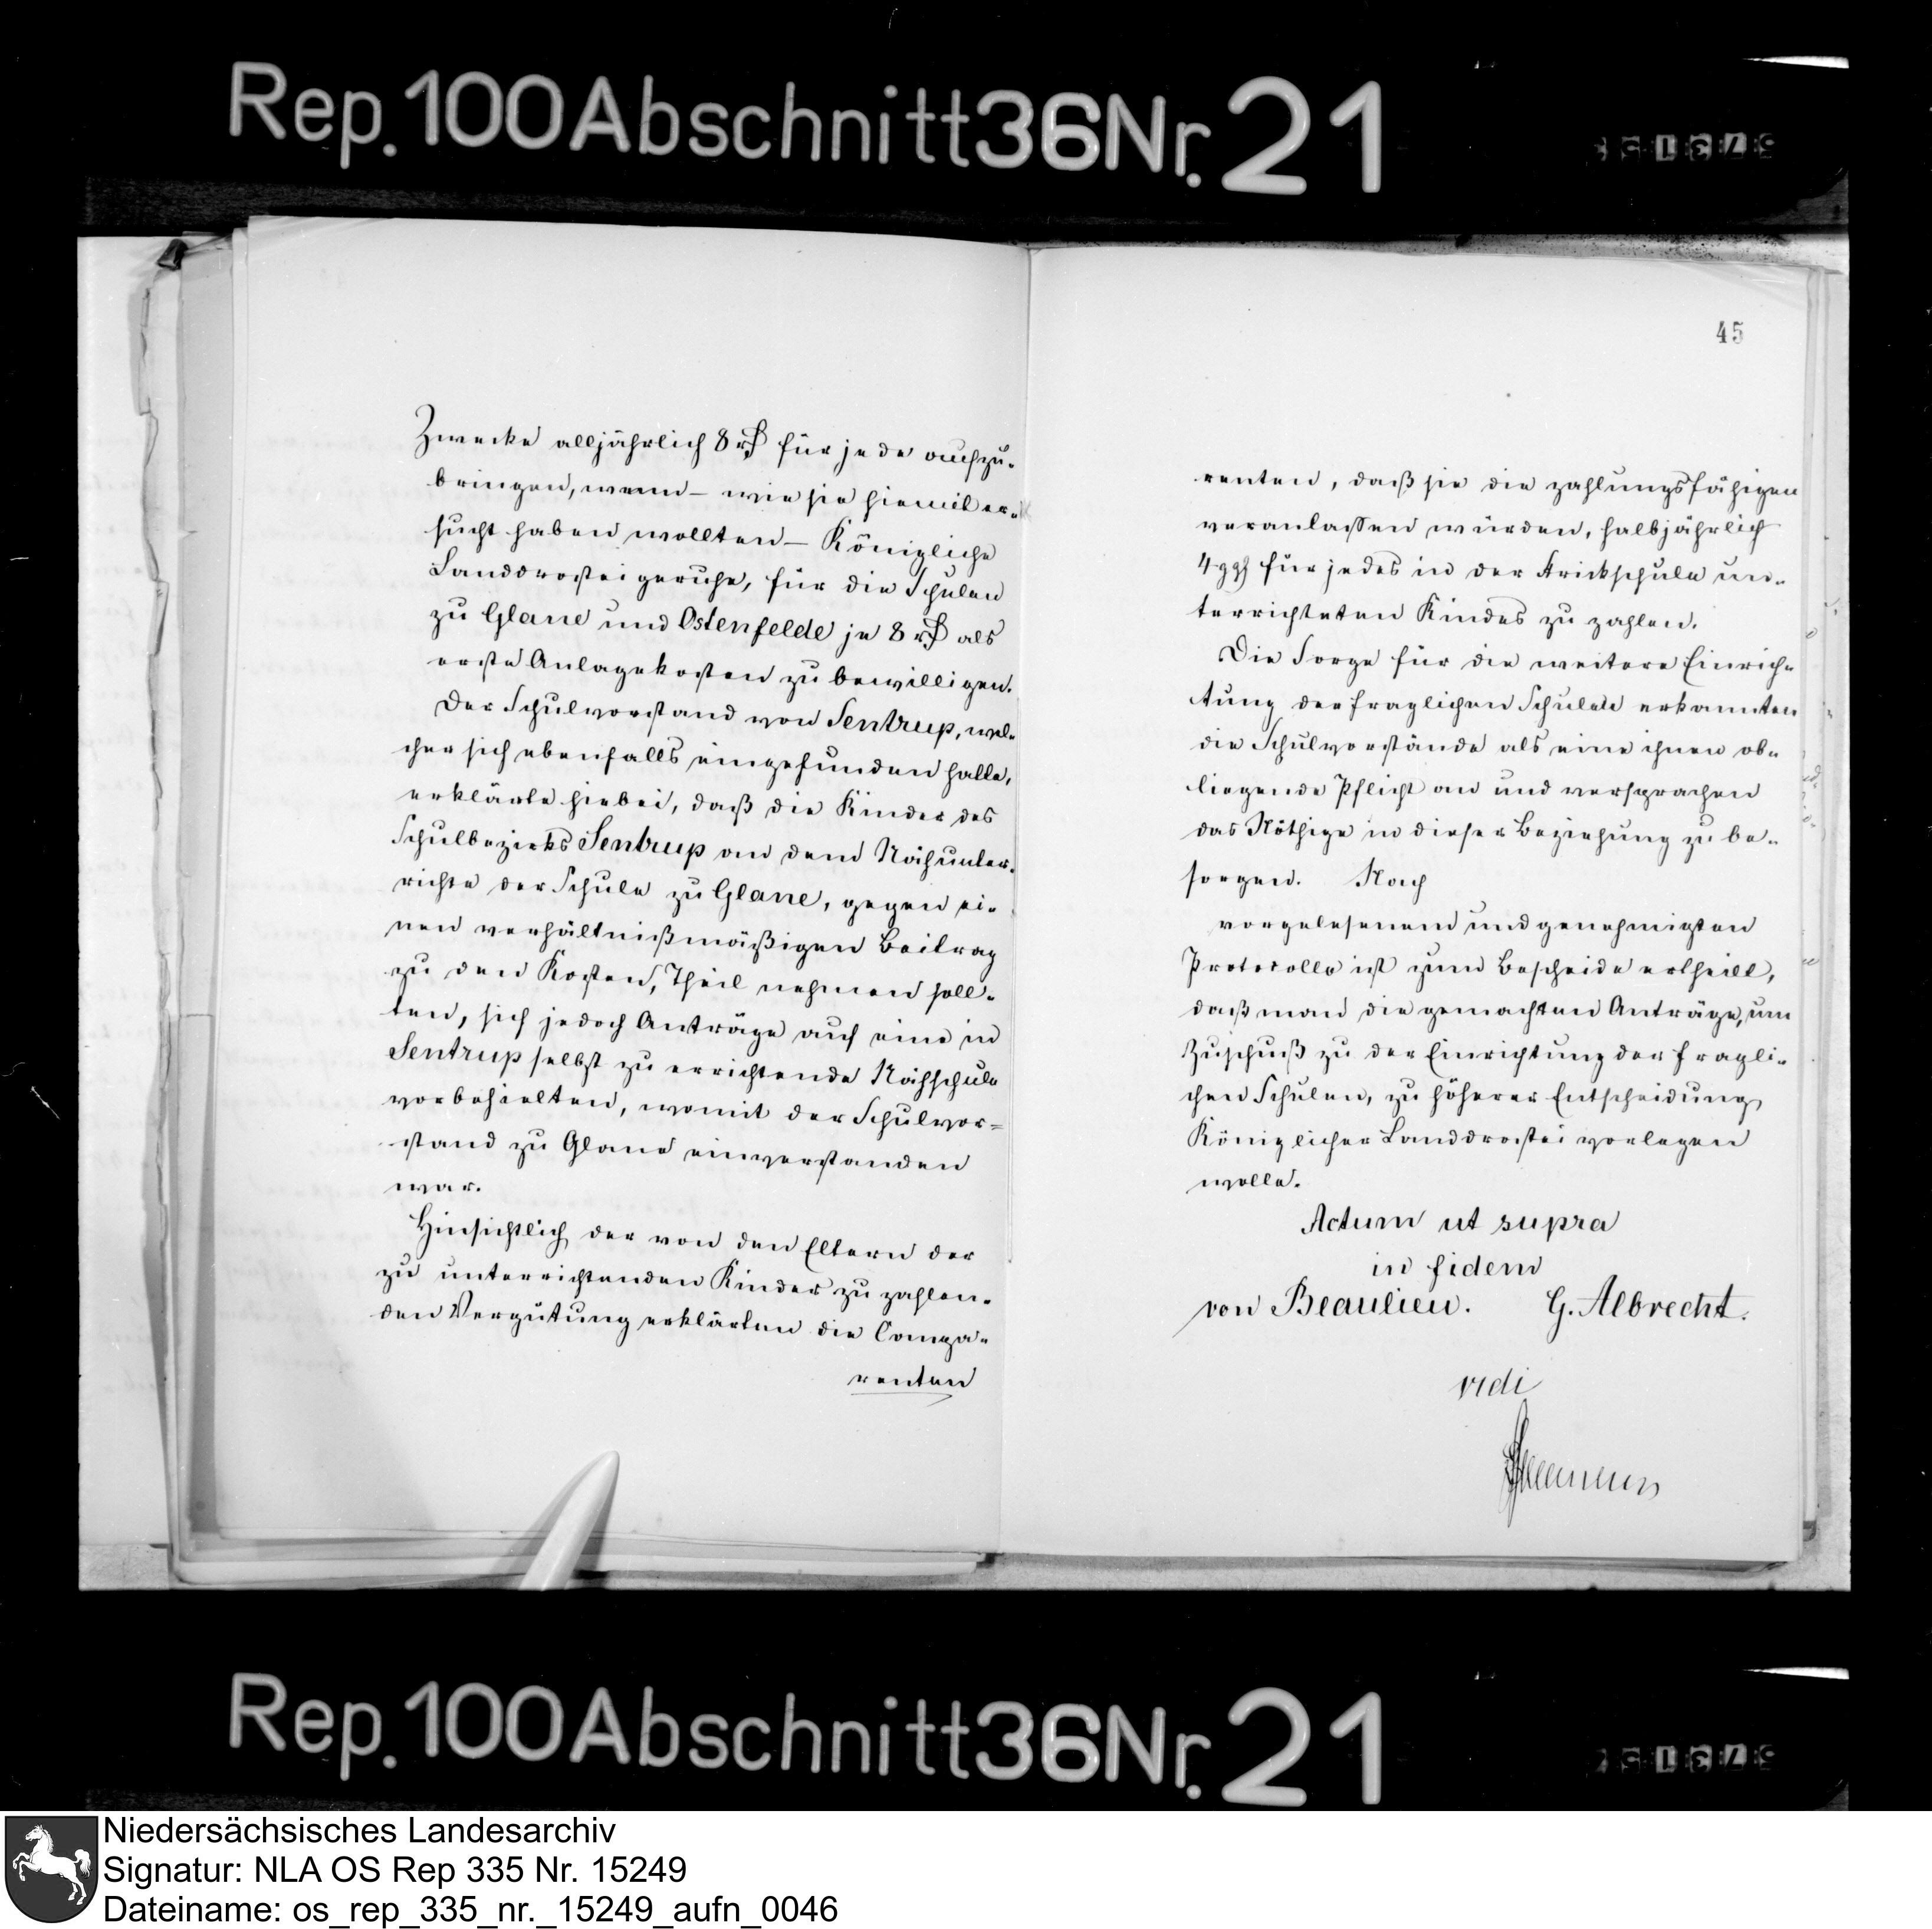 Rep. 100 Abschnitt 36 Nr. 21
Zwecke alljährlich 8 rt für jede aufzu-
bringen, wenn – wie sie hiemit er-
sucht haben wollten – Königliche
Landdrostei geruhe, für die Schulen
zu Glane und Ostenfelde je 8 rt als
erste Anlagekosten zu bewilligen.
Der Schulvorstand von Sentrup, wel-
cher sich ebenfalls eingefunden hatte,
erklärte hiebei, daß die Kinder des
Schulbezirks Sentrup an dem Nähunter-
richte der Schule zu Glane, gegen ei-
nen verhältnißmäßigen Beitrag
zu den Kosten, Theil nehmen soll-
ten, sich jedoch Anträge auf eine in
Sentrup selbst zu errichtende Nähschule
vorbehielten, womit der Schulvor-
stand zu Glane einverstanden
war.
Hinsichtlich der von den Eltern der
zu unterrichtenden Kinder zu zahlen-
den Vergütung erklärten die Compa-
renten
45
renten, daß sie die zahlungsfähigen
veranlassen würden, halbjährlich
4 ggf für jedes in der Strickschule un-
terrichteten Kindes zu zahlen.
Die Sorge für die weitere Einrich-
tung der fraglichen Schulen erkannten
die Schulvorstände als eine ihnen ob-
liegende Pflicht an und versprachen
das Nöthige in dieser Beziehung zu be-
sorgen. Nach
vorgelesenem und genehmigten
Protocolle ist zum Bescheide ertheilt,
daß man die gemachten Anträge, um
Zuschuß zu der Einrichtung der fragli-
chen Schulen, zu höherer Entscheidung
Königlicher Landdrostei vorlegen
wolle.
Actum ut supra
in fidem
von Beaulieu. G. Albrecht.
vidi
Rep. 100 Abschnitt 36 Nr. 21
Niedersächsisches Landesarchiv
Signatur: NLA OS Rep 335 Nr. 15249
Dateiname: os_rep_335_nr._15249_aufn_0046